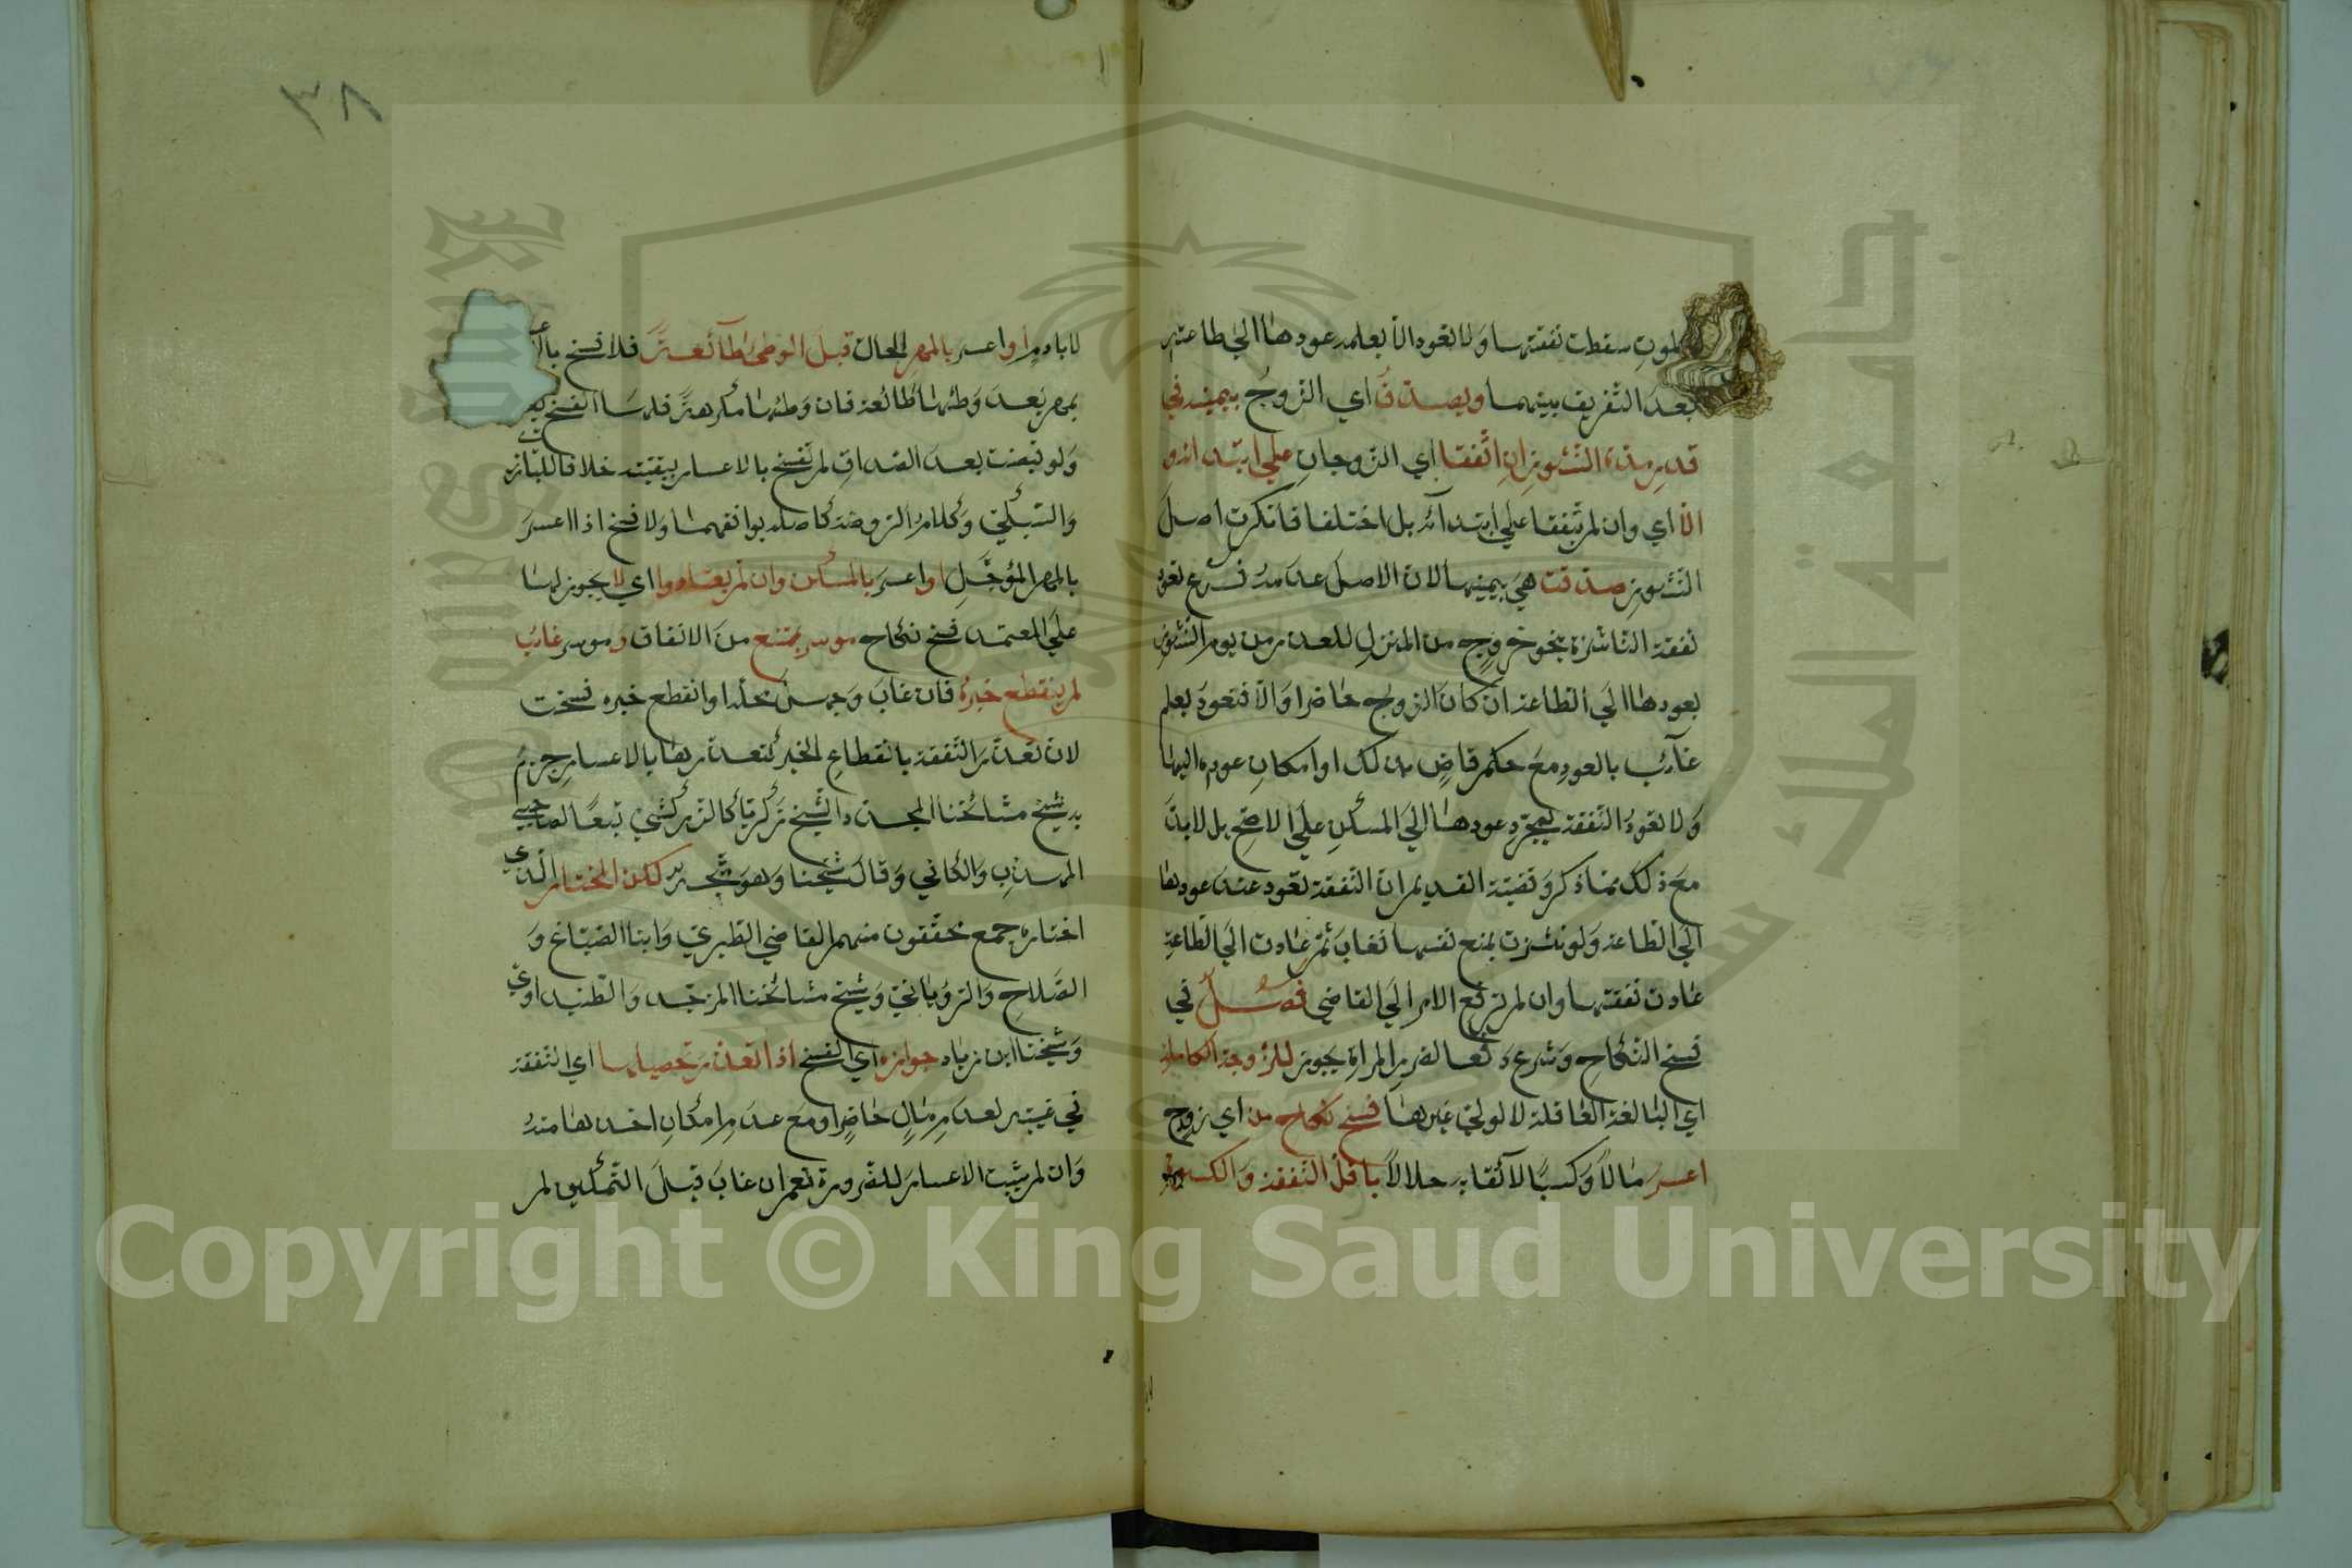 ٣٨
لموب سقطت نفقتها ولا تعود الا بعلمه عودها الي طاعته
بعد التفريق بينهما ويصدق اي الزوج بيمينه في
قدر مدة النشوز ان اتفقا اي الزوجان علي ابتدائه و
الا اي وان لم يتفقا علي ابتدائه بل اختلفا فانكرت اصل
النشوز صدقت هي بيمينها لان الاصل عدمه فرع تعود
نفقة الناشزة بنحو خروج من المنزل للعذر من يوم النشوز
بعودها الي الطاعة ان كان الزوج حاضرا والا فتعود بعلم
غائب بالعود مع حكم قاض بذلك او امكان عوده اليها
ولا تعود النفقة بمجرد عودها الي المسكن علي الاصح بل لابد
مع ذلك مما ذكر وقضية القديم ان النفقة تعود عند عودها
الي الطاعة ولو نشزت بمنع نفسها فغاب ثم عادت الي الطاعة
عادت نفقتها وان لم ترفع الامر الي القاضي فصل في
فسخ النكاح وشرع دفعا لضرر المراة يجوز للزوجة الكاملة
اي البالغة العاقلة لا لولي غيرها فسخ نكاح من اي زوج
اعسر مالا وكسبا لائقا به حلالا باقل النفقة والكسوة
لا بادم او اعسر بالمهر الحال قبل الوطئ طائعة فلا فسخ
بمهر بعد وطئها طائعة فان وطئها مكرهة فلها الفسخ
ولو قبضت بعد الصداق لم تفسخ بالاعسار ببقيته خلافا للبارزي
والسبكي وكلام الروضة كاصله يوافقهما ولا فسخ اذا اعسر
بالمهر المؤجل او اعسر بالمسكن وان لم يعتادوا اي لا يجوز لها
علي المعتمد فسخ نكاح موسر يمتنع من الانفاق و موسر غائب
لم ينقطع خبره فان غاب وجهل محله او انقطع خبره فسخت
لان تعذر النفقة بانقطاع الخبر كتعذرها بالاعسار جزم
به شيخ مشائخنا المجدد الشيخ زكريا كالزركشي تبعا لصاحبي
المهذب والكافي وقال شيخنا وهو متجه لكن المختار الذي
اختاره جمع محققون منهم القاضي الطبري وابنا الصباغ و
الصلاح والروياني وشيخ مشائخنا المزجد والطنبداوي
وشيخنا ابن زياد جوازه اي الفسخ اذا تعذر تحصيلها اي النفقة
في غيبته لعدم مال حاضر او مع عدم امكان اخذها منه
وان لم يثبت الاعسار للضرورة نعم ان غاب قبل التمكين لم
Copyright © King Saud University